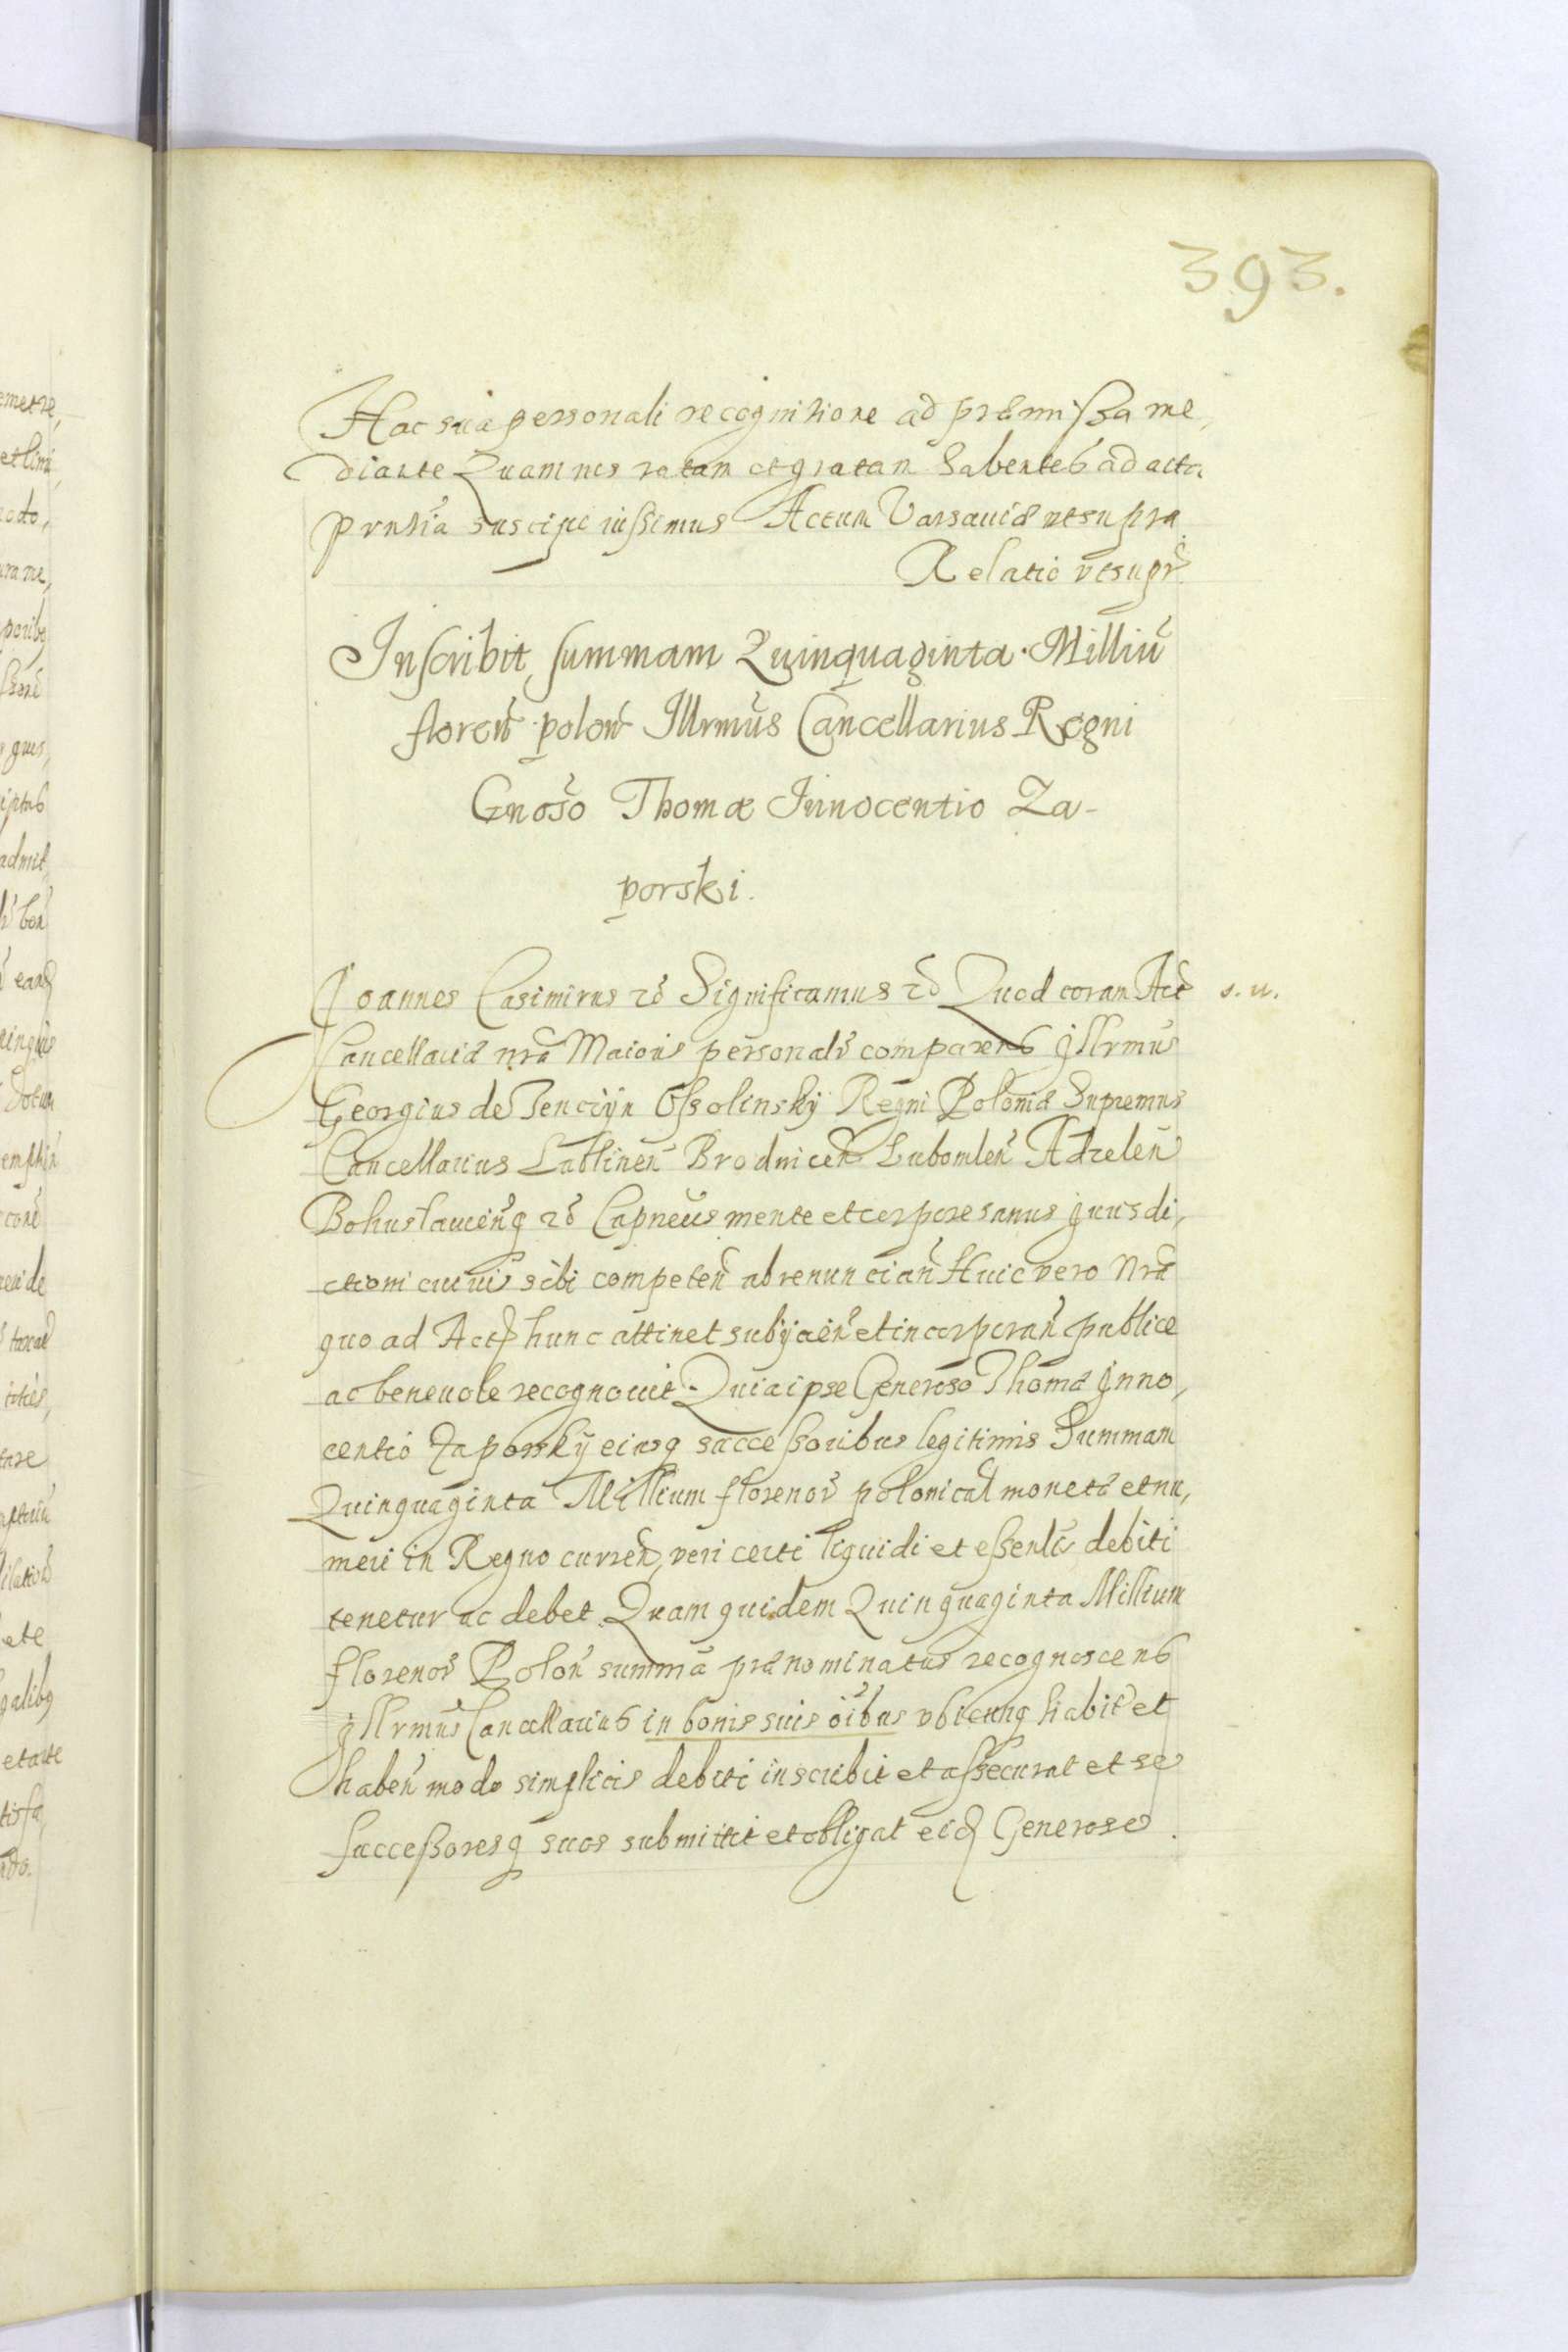 393.
Hac sua personali recognitione ad præmissa me,
diante Quam nos ratam et gratam habentes ad acta
prntia suscipi iussimus Actum Varsaviæ ut supra.
Relatio ut supr
Inscribit summam Quinquaginta Milliu
floren polon Illrmus Cancellarius Regni
Gnoso Thomæ Innocentio Za-
porski.
Joannes Casimirus &c Significamus &c Quod coram Act s. u.
Cancellariæ nra Maioris personalr comparens Jllrmus
Georgius de Tenczyn Ossolinskÿ Regni Poloniæ Supremus
Cancellarius Lublinen Brodnicen Lubomlen Adzelen
Bohuslauienq &c Capneus mente et corpore sanus jurisdi,
ctioni cuiuis sibi competen abrenuncian Huic vero Nra
quo ad Act hunc attinet subÿcien et incorporan publice
ac beneuole recognouit. Quia ipse Generoso Thomæ Jnno,
centio Zaporskÿ eiusq successoribus legitimis Summam
Quinquaginta Millium florenor polonical monetæ et nu,
meri in Regno curren, veri certi liquidi et essentlr debiti
tenetur ac debet. Quam quidem Quinquaginta Millium
florenor Polon summa prænominatus recognoscens
Jllrmus Cancellarius in bonis suis oibus vbicunq habit et
haben modo simplicis debiti inscribit et assecurat et se
successoresq suos submittit et obligat eid Generoso